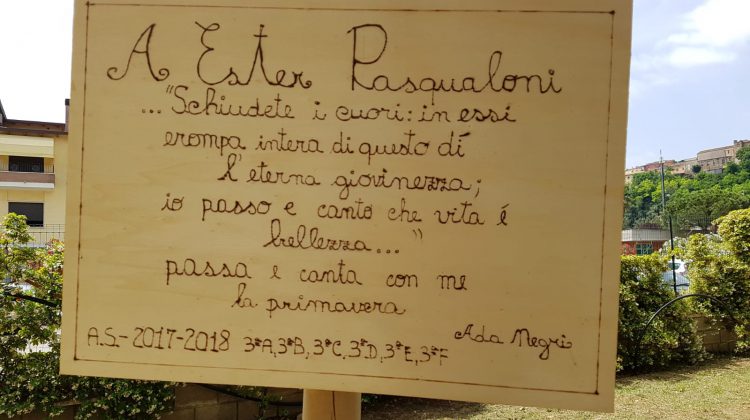 A Ester Pasqualoni
..."Schiudete i cuori: in essi
erompa intera di questo dí
l'eterna giovinezza;
io passo e canto che vita é
bellezza..."
passa e canta con me
la primavera
Ada Negri
A.S.-2017-2018 3ªA, 3ªB, 3ªC, 3ªD, 3ªE, 3ªF